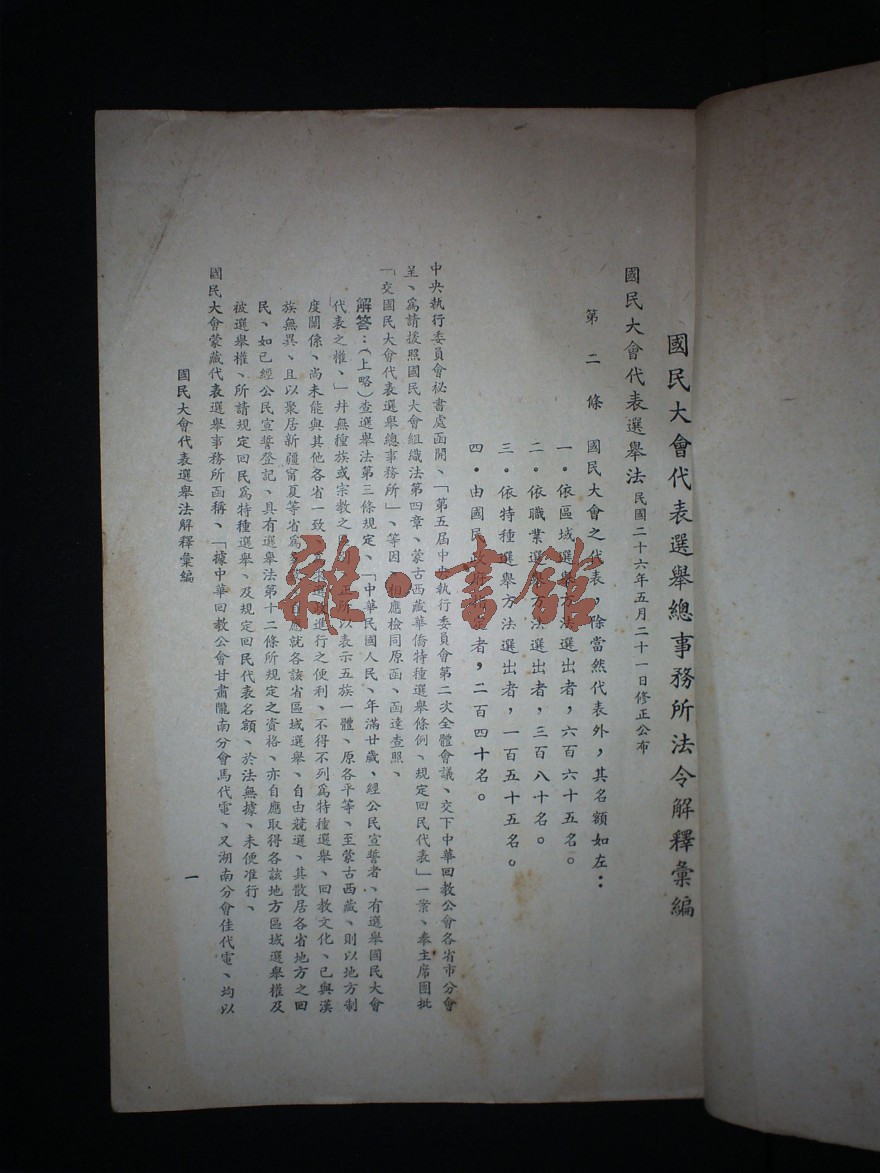 國民大會代表選舉總事務所法令解釋彙編
國民大會代表選舉法 民國二十六年五月二十一日修正公布
第二條 國民大會之代表，除當然代表外，其名額如左：
一・依區域選舉方法選出者，六百六十五名。
二・依職業選舉方法選出者，三百八十名。
三・依特種選舉方法選出者，一百五十五名。
四・由國民政府指定者，二百四十名。
中央執行委員會祕書處函開、「第五屆中央執行委員會第二次全體會議、交下中華回教公會各省市分會
呈、爲請援照國民大會組織法第四章、蒙古西藏華僑特種選舉條例、規定回民代表」一案、奉主席團批
「交國民大會代表選舉總事務所」、等因、相應檢同原函、函達查照、
解答：（上略）查選舉法第三條規定、「中華民國人民、年滿廿歲、經公民宣誓者、有選舉國民大會
代表之權、」幷無種族或宗教之 正所以表示五族一體、原各平等、至蒙古西藏、則以地方制
度關係、尚未能與其他各省一致、 進行之便利、不得不列爲特種選舉、回教文化、已與漢
族無異、且以聚居新疆甯夏等省爲 應就各該省區域選舉、自由競選、其散居各省地方之回
民、如已經公民宣誓登記、具有選舉法第十二條所規定之資格、亦自應取得各該地方區域選舉權及
被選舉權、所請規定回民爲特種選舉、及規定回民代表名額、於法無據、未便准行、
國民大會蒙藏代表選舉事務所函稱、「據中華回教公會甘肅隴南分會馬代電、又湖南分會佳代電、均以
國民大會代表選舉法解釋彙編
一
雜・書館